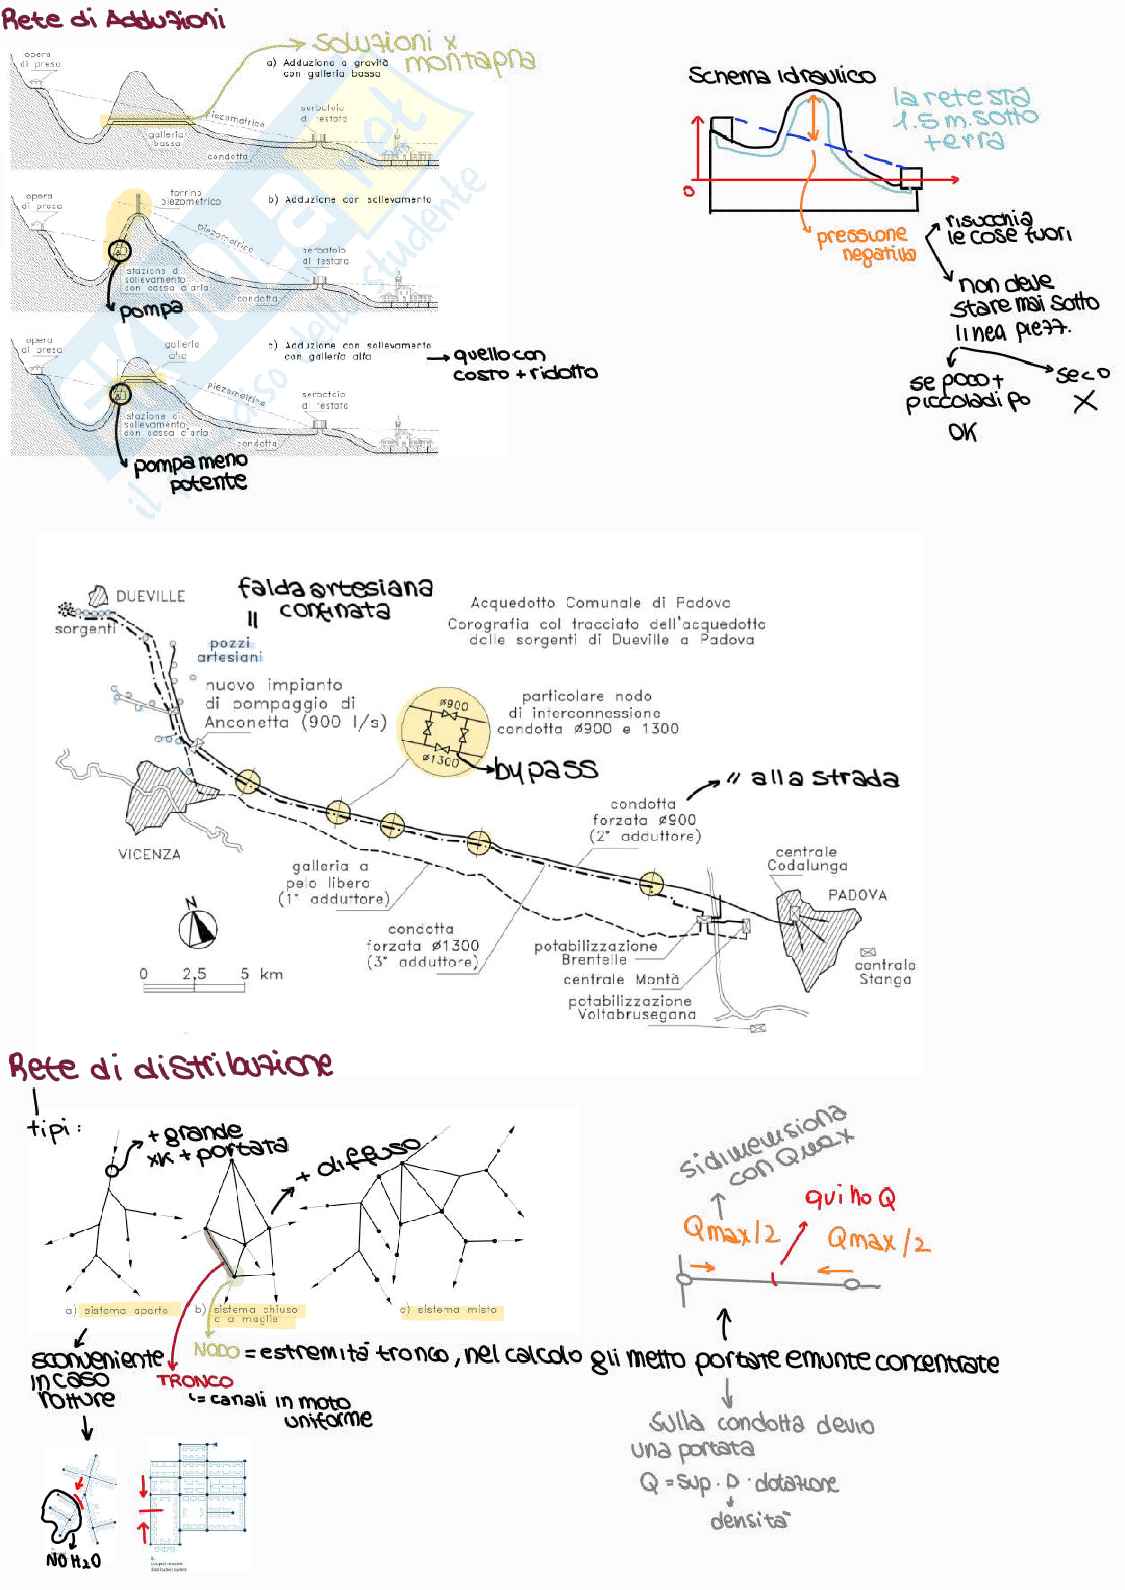 Rete di Adduzioni
soluzioni x
montagna
opera
di presa
a) Adduzione a gravità
con galleria bassa
piezometrica
serbatoio
di testata
galleria
bassa
condotta
Schema idraulico
la rete sta
1.5 m. sotto
terra
0
pressione
negativa
risucchia
le cose fuori
non deve
stare mai sotto
linea piezz.
se poco +
piccola di p0
OK
se co
X
opera
di presa
torrino
piezometrico
b) Adduzione con sollevamento
piezometrica
serbatoio
di testata
stazione di
sollevamento
con cassa d'aria
condotta
pompa
opera
di presa
galleria
alta
c) Adduzione con sollevamento
con galleria alta
quello con
costo + ridotto
piezometrica
serbatoio
di testata
stazione di
sollevamento
con cassa d'aria
condotta
pompa meno
potente
SKUOLA.net
il paradiso dello studente
DUEVILLE
sorgenti
falda artesiana
confinata
pozzi
artesiani
Acquedotto Comunale di Padova
Corografia col tracciato dell'acquedotto
dalle sorgenti di Dueville a Padova
nuovo impianto
di pompaggio di
Anconetta (900 l/s)
ø900
ø1300
particolare nodo
di interconnessione
condotta ø900 e 1300
bypass
// alla strada
condotta
forzata ø900
(2° adduttore)
VICENZA
galleria a
pelo libero
(1° adduttore)
centrale
Codalunga
PADOVA
N
condotta
forzata ø1300
(3° adduttore)
potabilizzazione
Brentelle
centrale Montà
potabilizzazione
Voltabrusegana
centrale
Stanga
0 2,5 5 km
Rete di distribuzione
tipi:
+ grande
xk + portata
+ diffuso
a) sistema aperto
b) sistema chiuso
o a maglie
c) sistema misto
si dimensiona
con Qmax
qui ho Q
Qmax/2
Qmax/2
sconveniente
in caso
rotture
NODO = estremità tronco, nel calcolo gli metto portate emunte concentrate
TRONCO
= canali in moto
uniforme
Sulla condotta devio
una portata
Q = sup · D · dotazione
densità
NO H2O